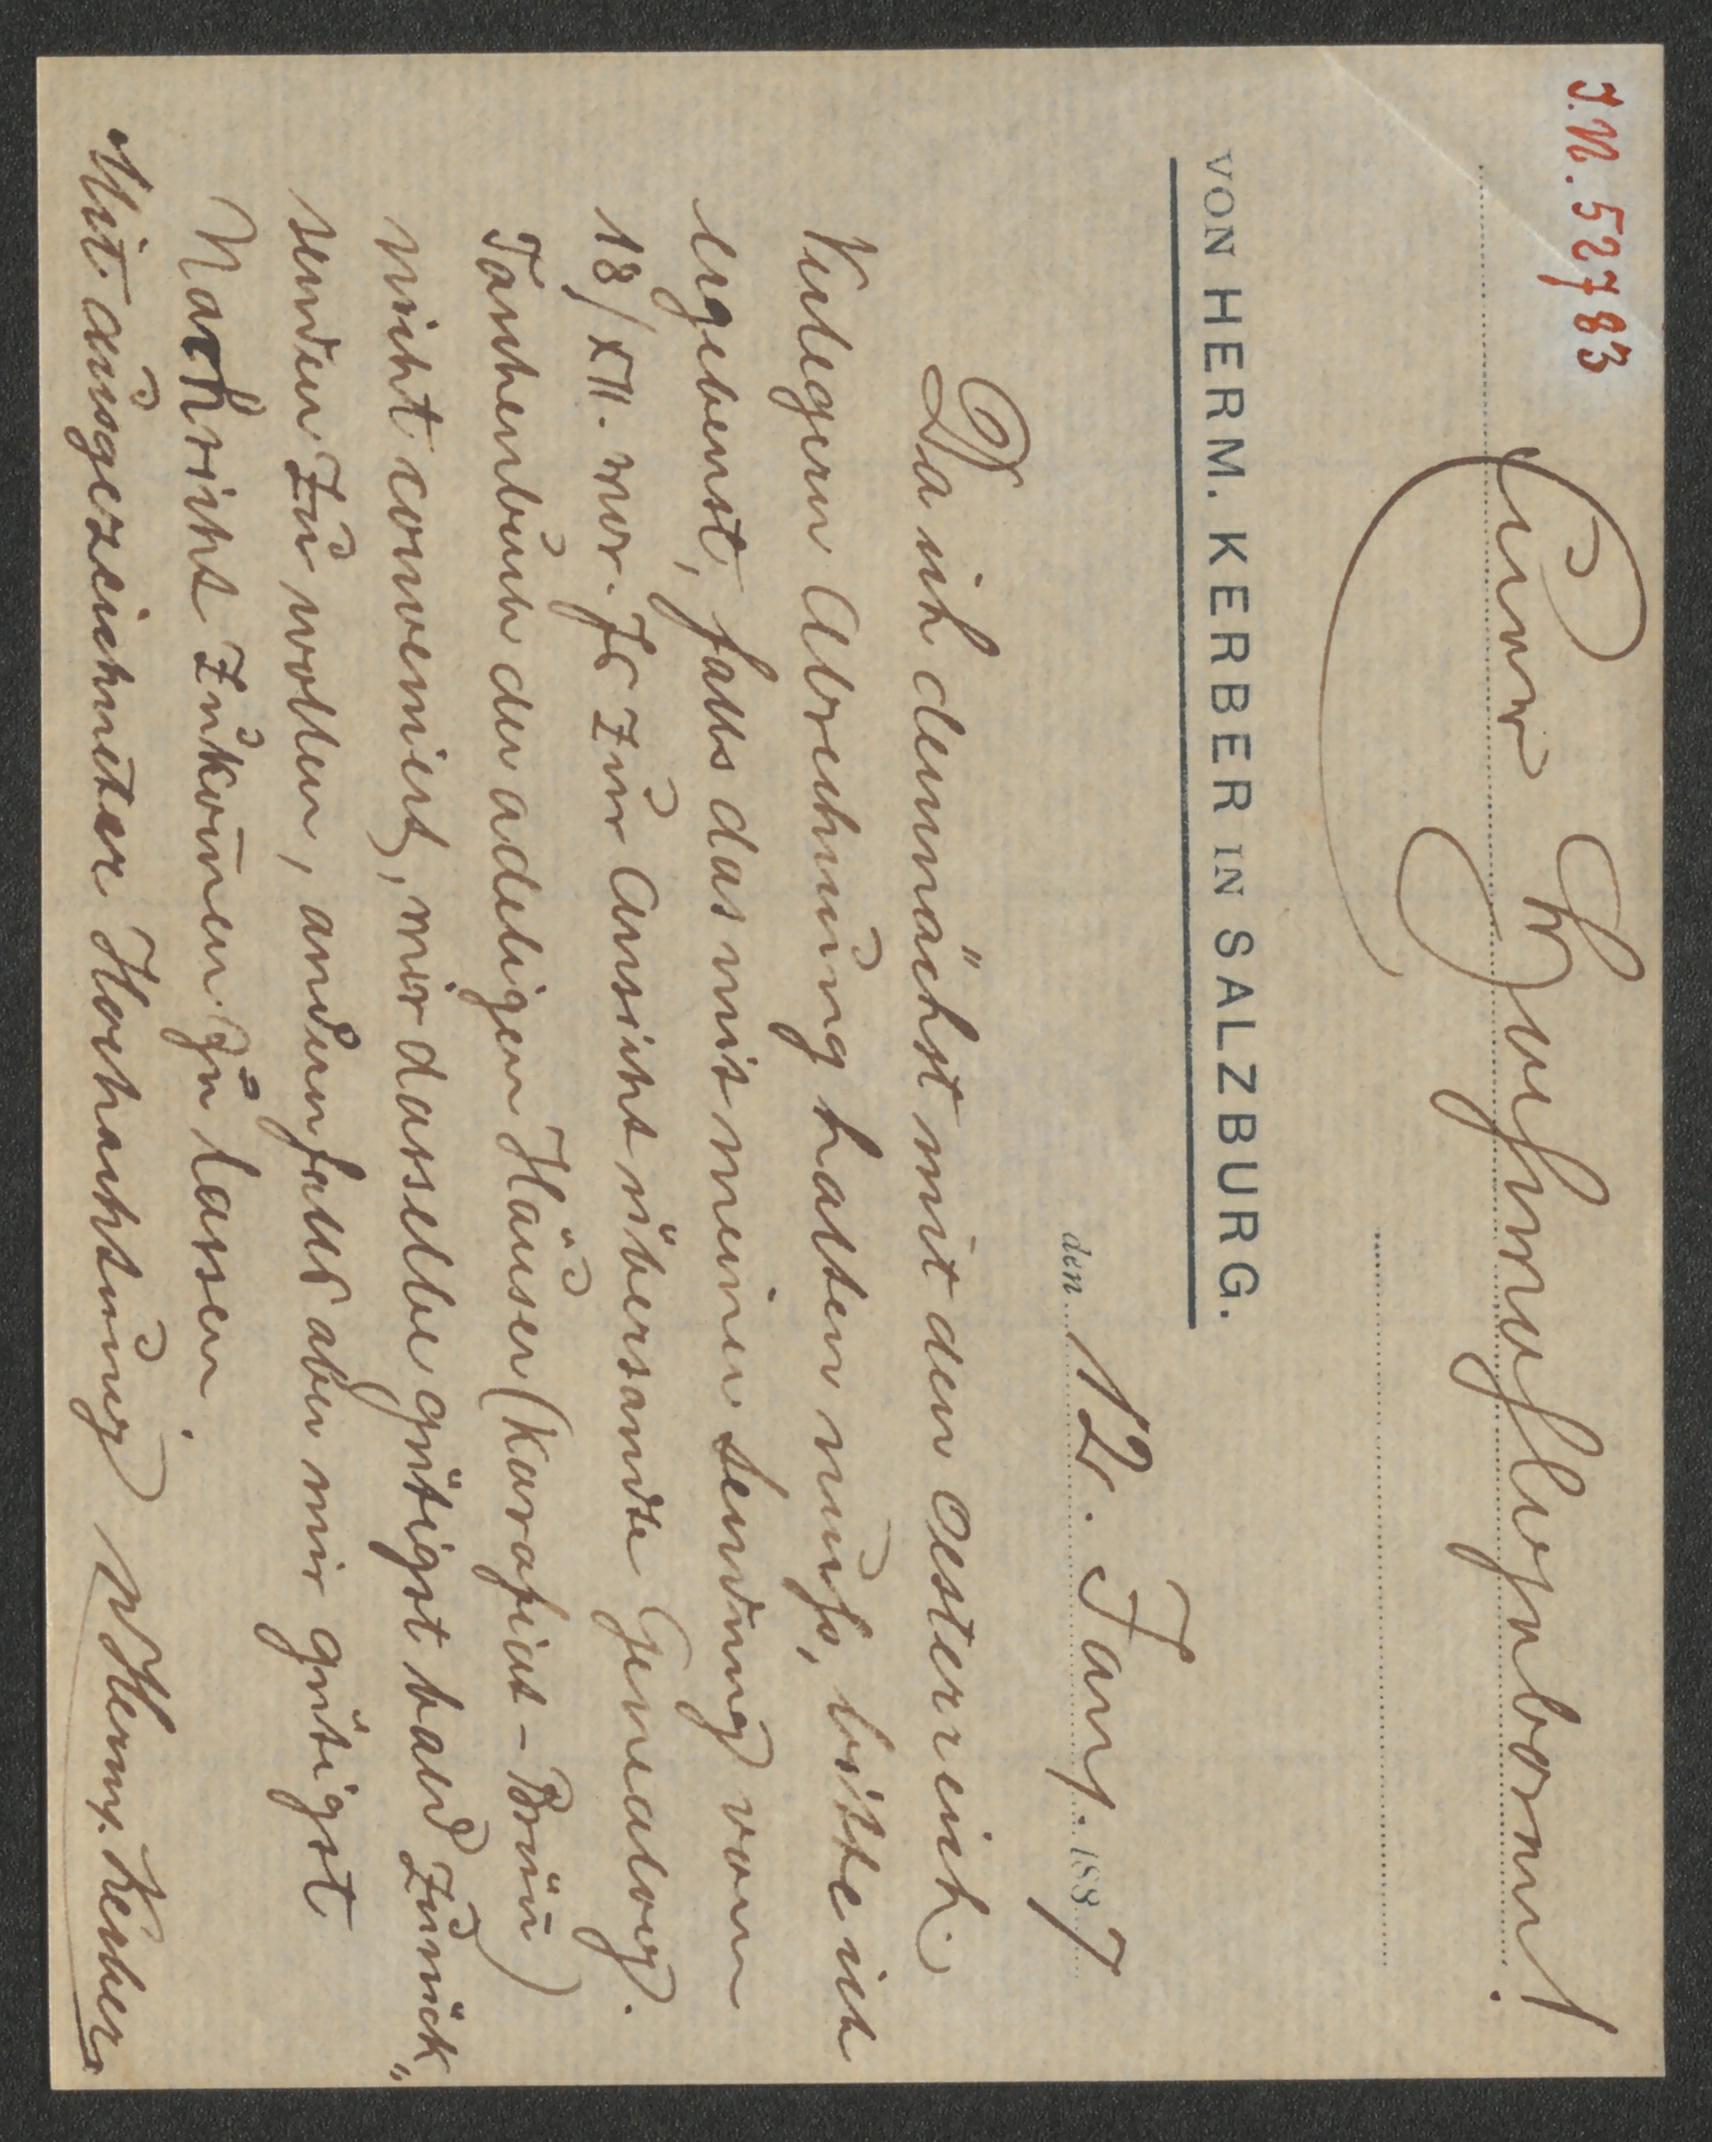 J.N. 52783
Euer Hochwohlgeboren!
VON HERM. KERBER IN SALZBURG.
den 12. Jan. 1887
Da ich demnächst mit den Oesterreich.
Verlegern Abrechnung halten muß, bitte ich
ergebenst, falls das mit meiner Sendung vom
18/XII. vor. Js zur Ansicht übersandte Genealog.
Taschenbuch der adeligen Häuser (Karafiat-Brün̄)
nicht conveniert, mir dasselbe gütigst bald zurück„
senden zu wollen, andernfalls aber mir gütigst
Nachricht zukom̄en zu lassen.
Mit ausgezeichneter Hochachtung Herm. Kerber